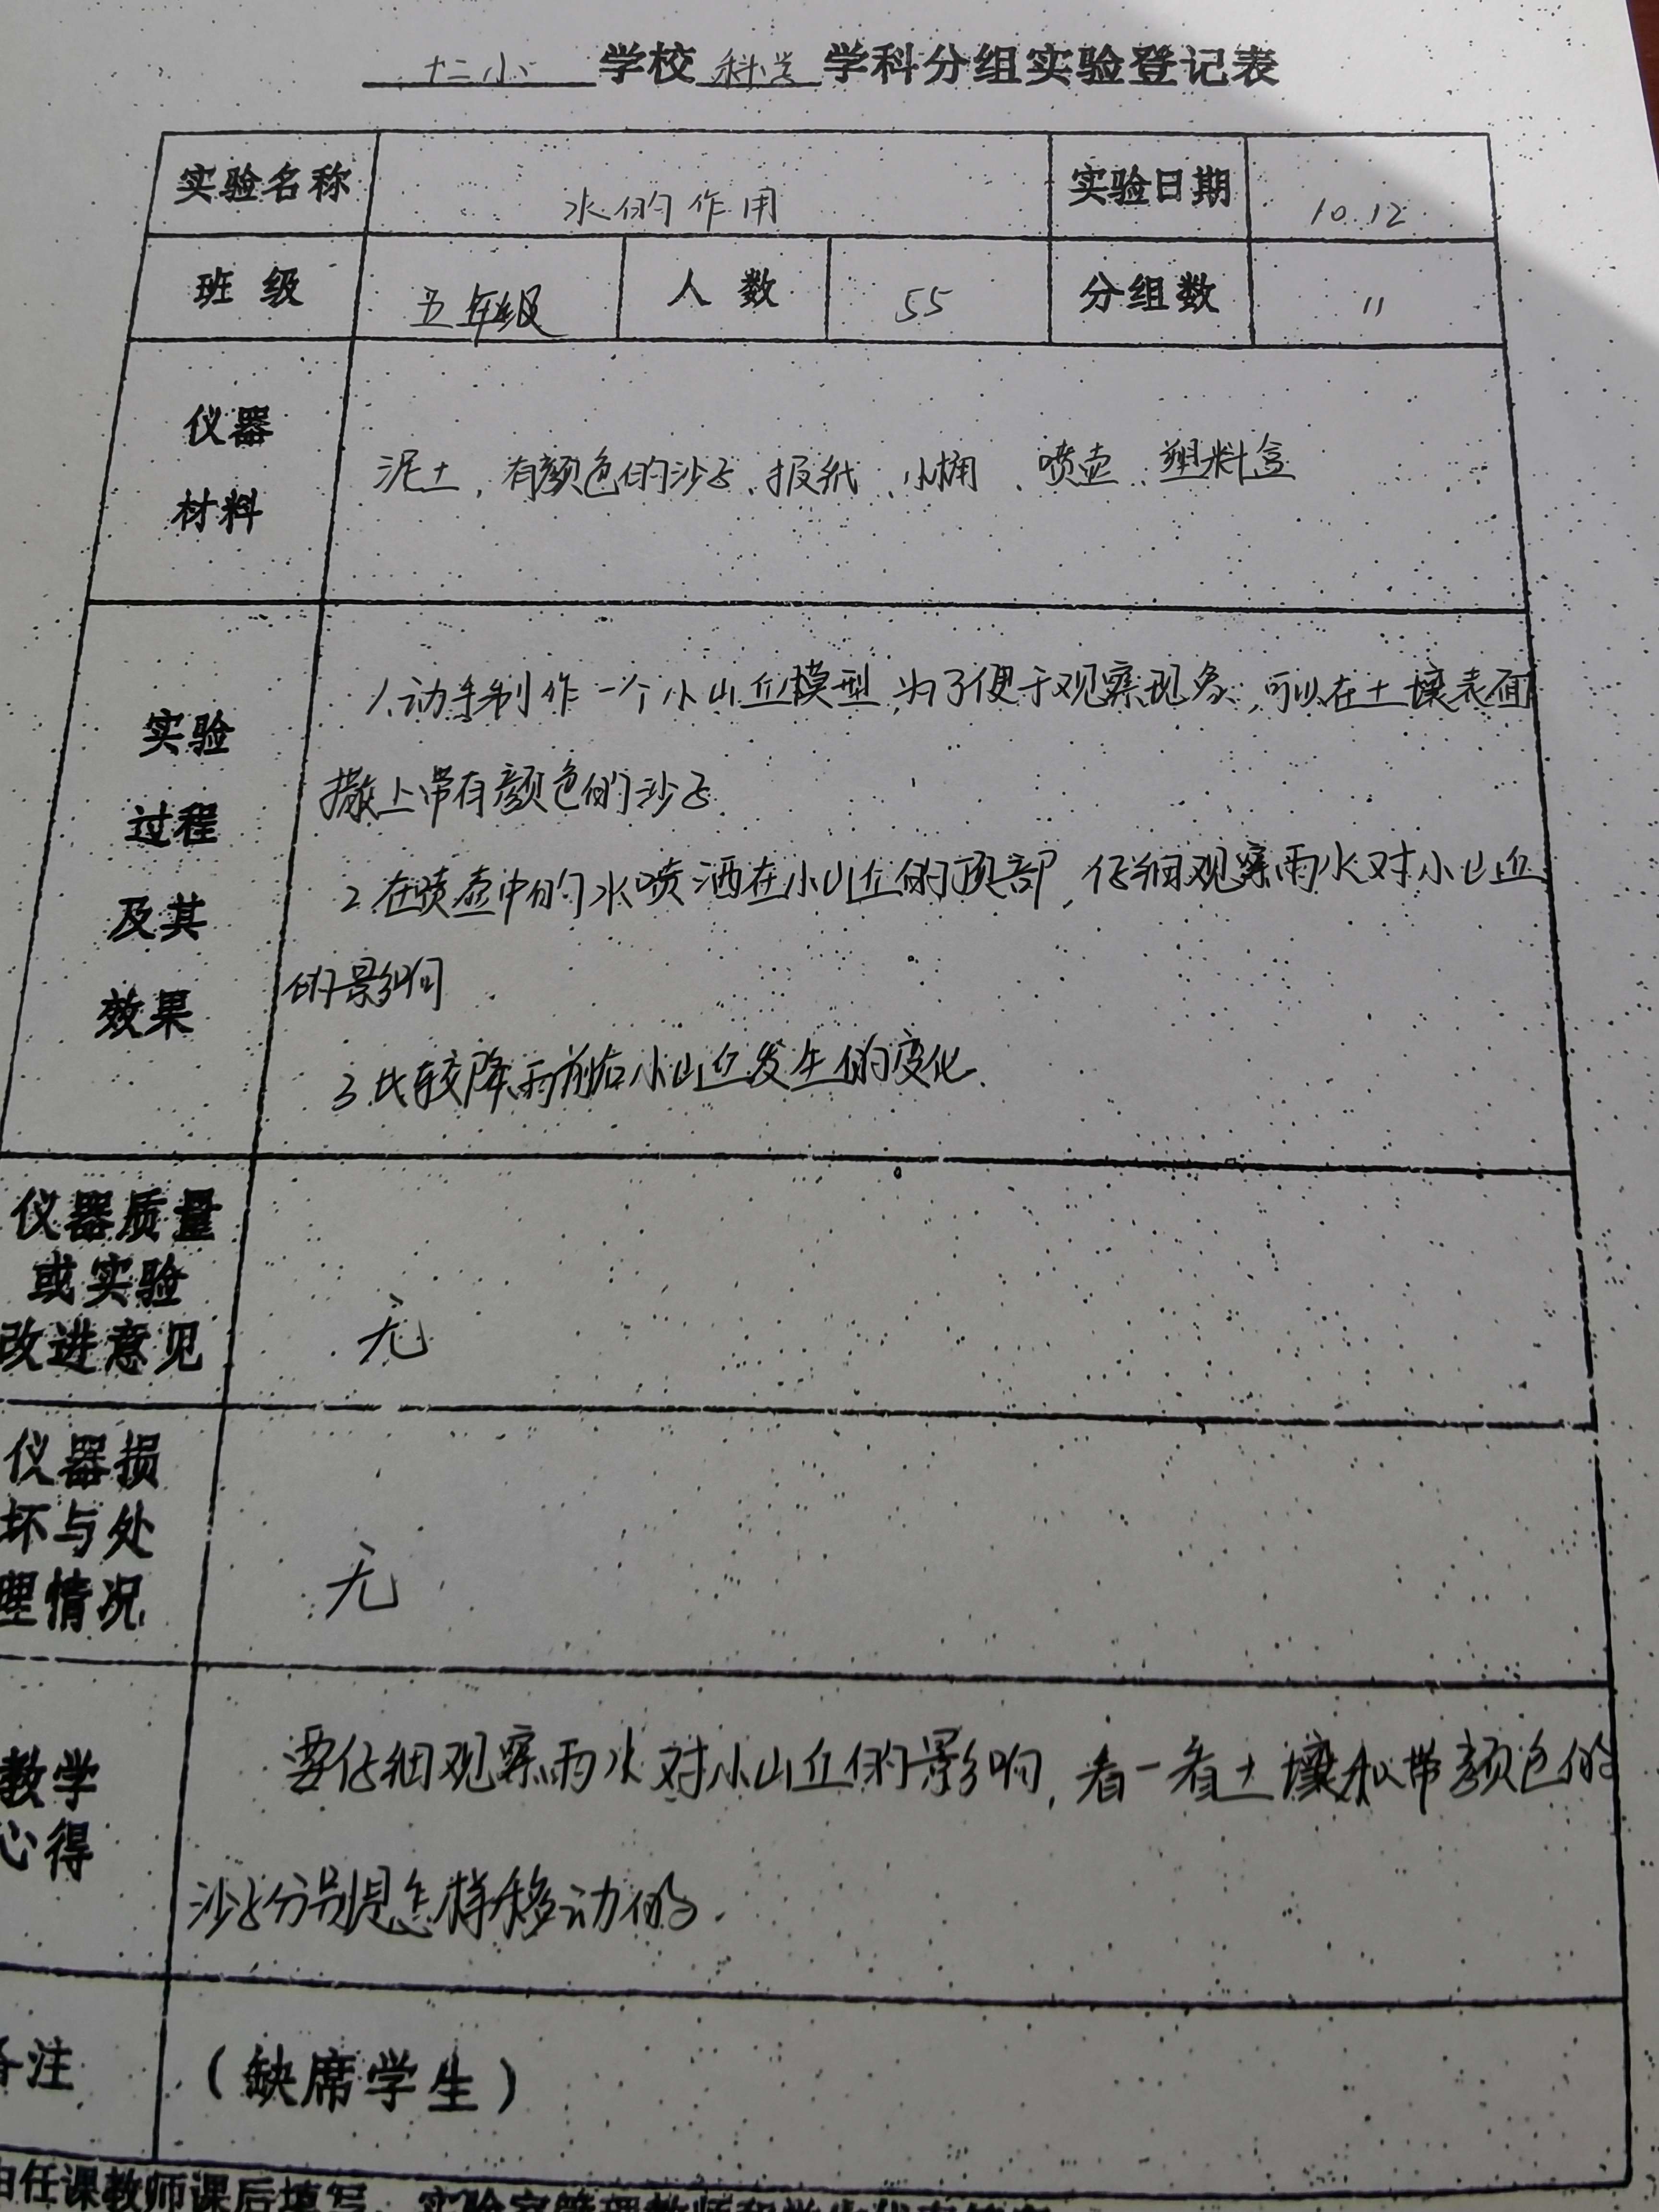 十二小 学校 科学 学科分组实验登记表
实验名称 水的作用 实验日期 10.12
班 级 五年级 人 数 55 分组数 11
仪器
材料
泥土、有颜色的沙子、报纸、小桶、喷壶、塑料盒
实验
过程
及其
效果
1.动手制作一个小山丘模型,为了便于观察现象,可以在土壤表面
撒上带有颜色的沙子.
2.在喷壶中的水喷洒在小山丘的顶部,仔细观察雨水对小山丘
的影响
3.比较降雨前后小山丘发生的变化.
仪器质量
或实验
改进意见
无
仪器损
坏与处
理情况
无
教学
心得
要仔细观察雨水对小山丘的影响,看一看土壤和带颜色的
沙子分别是怎样移动的.
备注 (缺席学生)
由任课教师课后填写,实验室管理教师和学生代表签字